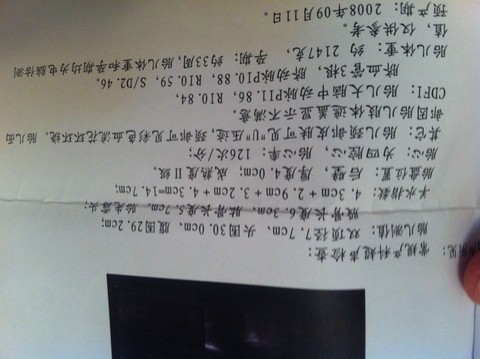 见: 常规产科超声检查:
胎儿测值: 双顶径7.7cm、头围30.0cm、腹围29.2cm;
股骨长度6.3cm、肱骨长度5.7cm、胎先露头;
羊水指数: 4.3cm+2.9cm+3.2cm+4.3cm=14.7cm;
胎盘位置: 后壁, 厚度4.0cm; 成熟度Ⅱ级
胎心: 为四腔心, 胎心率: 126次/分;
其它: 胎儿颈部皮肤可见"U"压迹,颈部可见彩色血流环绕. 胎儿面
部因胎儿肢体遮盖显示不满意。
CDFI: 胎儿大脑中动脉PI1.86, RI0.84,
脐血管3根, 脐动脉PI0.88, RI0.59, S/D2.46.
胎儿体重: 约 2147克, 孕期: 约33周,胎儿体重和孕期均为电脑估测
值, 仅供参考。
预产期: 2008年09月11日。